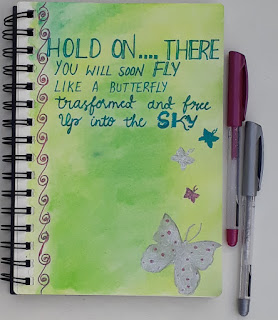 HOLD ON.... THERE
YOU WILL SOON FLY
LIKE A BUTTERFLY
trasformed and free
Up into the SKY